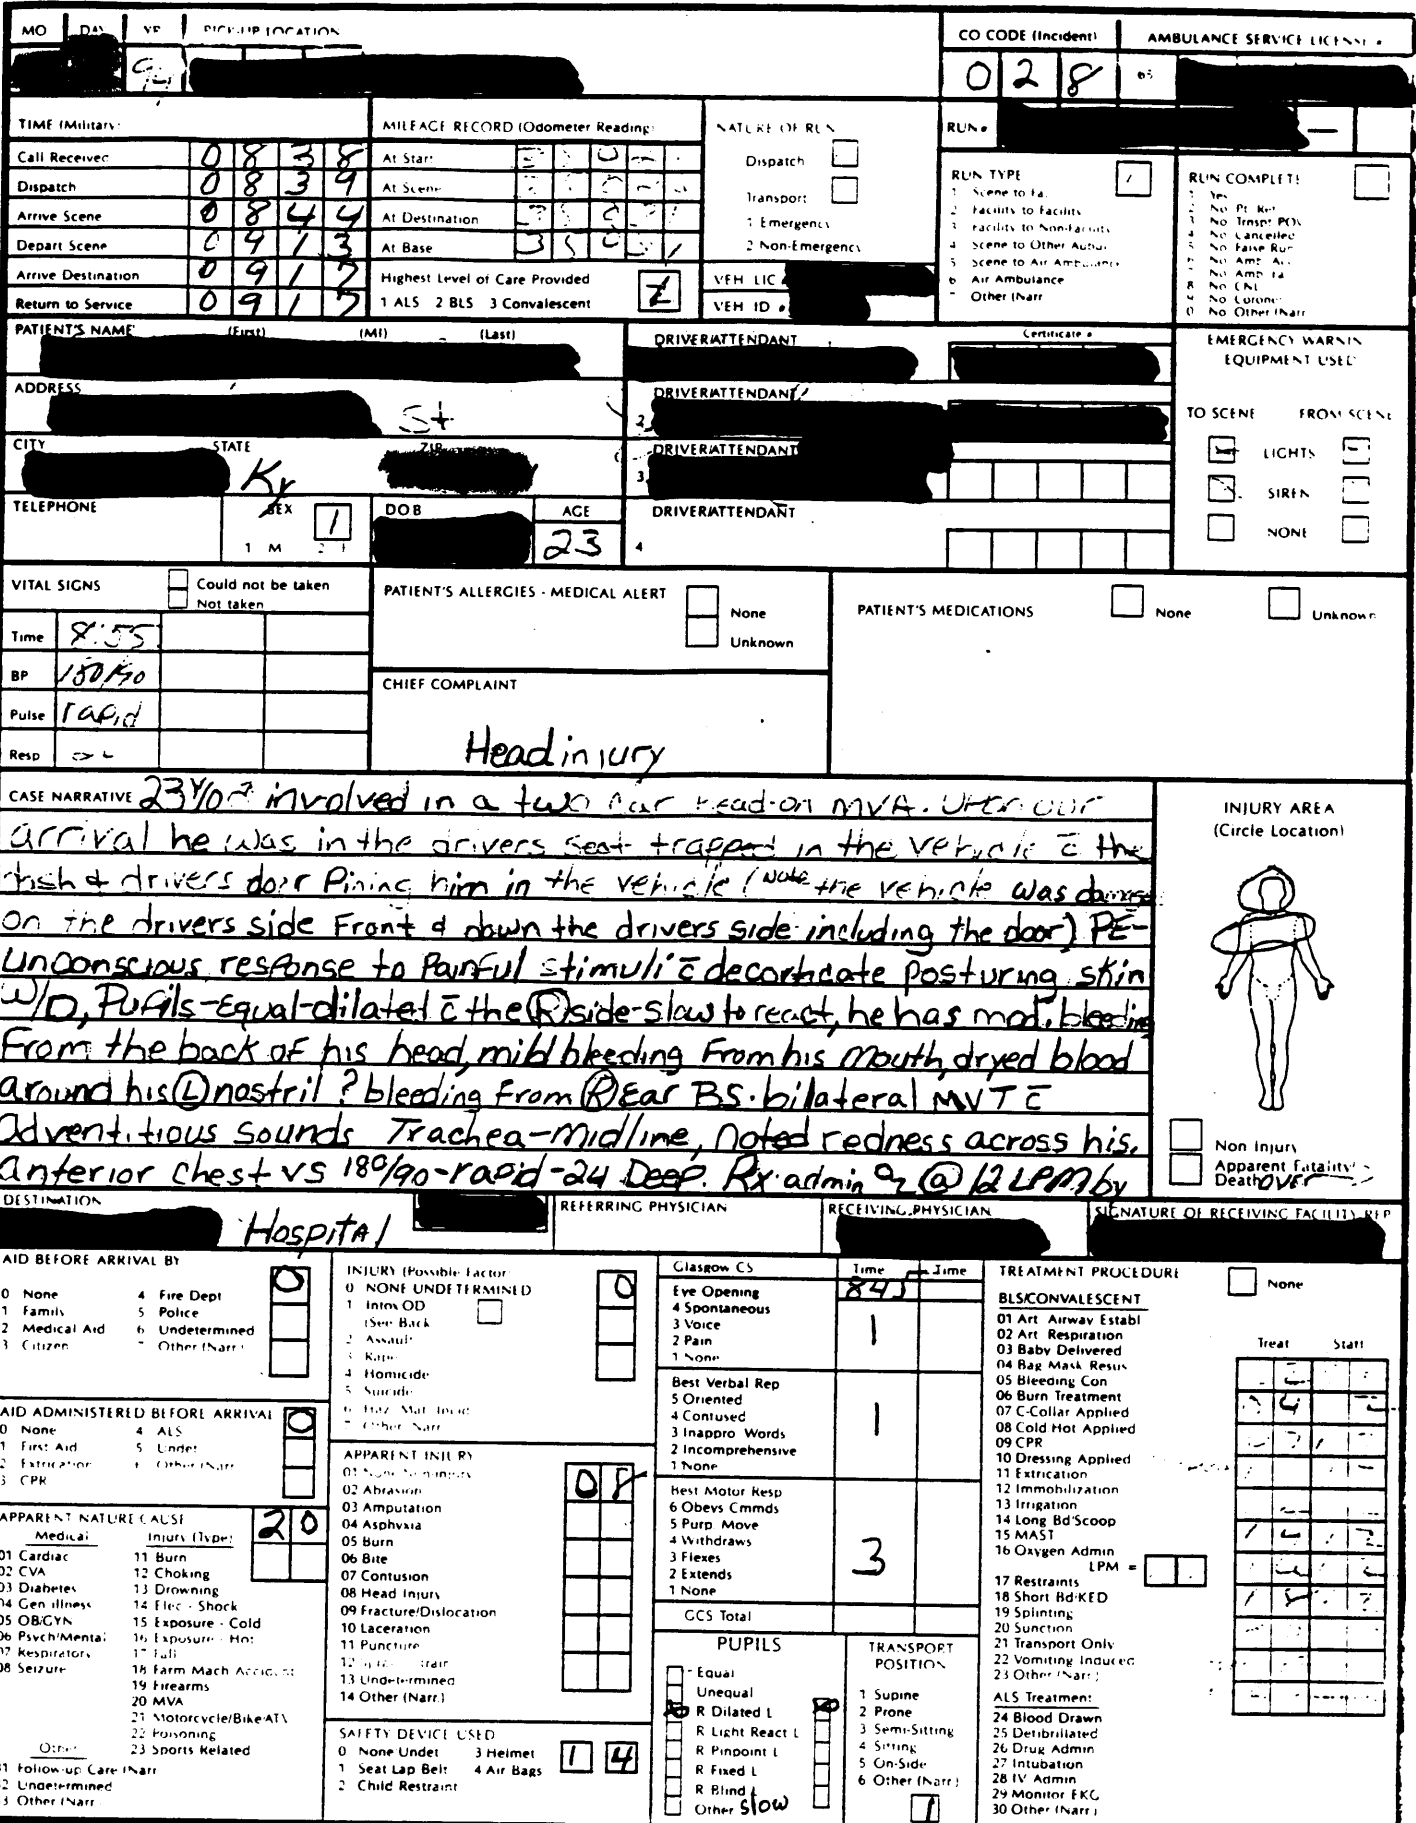 MO DAY YR PICK-UP LOCATION
CO CODE (Incident) AMBULANCE SERVICE LICENSE #
94
0 2 8
TIME (Military)
MILEAGE RECORD (Odometer Reading)
NATURE OF RUN
RUN#
Call Received 0 8 3 8
Dispatch 0 8 3 9
Arrive Scene 0 8 4 4
Depart Scene 0 9 1 3
Arrive Destination 0 9 1 7
Return to Service 0 9 1 7
At Start
At Scene
At Destination
At Base
Highest Level of Care Provided
1 ALS 2 BLS 3 Convalescent
Dispatch
Transport
1 Emergency
2 Non-Emergency
VEH LIC
VEH ID #
RUN TYPE
1 Scene to Fa
2 Facility to Facility
3 Facility to Non-Facility
4 Scene to Other Ambul
5 Scene to Air Ambulance
6 Air Ambulance
7 Other (Narr
RUN COMPLETE
1 Yes
2 No Pt Ref
3 No Trnspt POV
4 No Cancelled
5 No False Run
8 No CNL
9 No Coroner
0 No Other (Narr
PATIENT'S NAME (First) (MI) (Last)
DRIVER/ATTENDANT Certificate #
EMERGENCY WARNIN
EQUIPMENT USED
ADDRESS
St
DRIVER/ATTENDANT
2
TO SCENE FROM SCENE
LIGHTS
SIREN
NONE
CITY STATE ZIP
Ky
DRIVER/ATTENDANT
3
TELEPHONE SEX 1
1 M 2 F
DOB AGE
23
DRIVER/ATTENDANT
4
VITAL SIGNS
Could not be taken
Not taken
Time 8:55
BP
Pulse rapid
Resp
PATIENT'S ALLERGIES - MEDICAL ALERT
None
Unknown
CHIEF COMPLAINT
Head injury
PATIENT'S MEDICATIONS None Unknown
CASE NARRATIVE 23 y/o ♂ involved in a two car head-on MVA. Upon our
arrival he was in the drivers seat trapped in the vehicle c̄ the
dash & drivers door Pining him in the vehicle (Note the vehicle was damage
on the drivers side Front & down the drivers side including the door) PE-
Unconscious response to Painful stimuli c̄ decorticate posturing, skin
W/D, Pupils-Equal-dilated c̄ the (R) side-slow to react, he has mod. bleeding
From the back of his head, mild bleeding From his mouth, dryed blood
around his (L) nostril ? bleeding From (R) Ear BS. bilateral MVT c̄
Adventitious sounds Trachea-Midline, Noted redness across his.
anterior chest VS 180/90-rapid-24 Deep. Rx admin O2 @ 12 LPM by
INJURY AREA
(Circle Location)
Non Injury
Apparent Fatality
Death
OVER
DESTINATION
Hospital
REFERRING PHYSICIAN
RECEIVING PHYSICIAN
SIGNATURE OF RECEIVING FACILITY REP
AID BEFORE ARRIVAL BY 0
0 None 4 Fire Dept
1 Family 5 Police
2 Medical Aid 6 Undetermined
3 Citizen 7 Other (Narr)
AID ADMINISTERED BEFORE ARRIVAL 0
0 None 4 ALS
1 First Aid 5 Undet
2 Extrication 6 Other (Narr
3 CPR
APPARENT NATURE CAUSE 2 0
Medical Injury (Type)
01 Cardiac 11 Burn
02 CVA 12 Choking
03 Diabetes 13 Drowning
04 Gen illness 14 Elec - Shock
05 OB/GYN 15 Exposure - Cold
06 Psych/Mental 16 Exposure - Hot
07 Respiratory 17 Fall
08 Seizure 18 Farm Mach Accident
19 Firearms
20 MVA
21 Motorcycle/Bike/ATV
22 Poisoning
Other 23 Sports Related
31 Follow-up Care (Narr
32 Undetermined
33 Other (Narr
INJURY (Possible Factor) 0
0 NONE UNDETERMINED
1 Intox OD
(See Back
2 Assault
3 Rape
4 Homicide
5 Suicide
6 Haz Mat Incid
7 Other Narr
APPARENT INJURY 0 8
02 Abrasion
03 Amputation
04 Asphyxia
05 Burn
06 Bite
07 Contusion
08 Head Injury
09 Fracture/Dislocation
10 Laceration
11 Puncture
13 Undetermined
14 Other (Narr.)
SAFETY DEVICE USED 1 4
0 None Undet 3 Helmet
1 Seat Lap Belt 4 Air Bags
2 Child Restraint
Glasgow CS Time Time
845
Eye Opening
4 Spontaneous
3 Voice
2 Pain
1 None
1
Best Verbal Rep
5 Oriented
4 Confused
3 Inappro Words
2 Incomprehensive
1 None
1
Best Motor Resp
6 Obeys Cmmds
5 Purp Move
4 Withdraws
3 Flexes
2 Extends
1 None
3
GCS Total
PUPILS
Equal
Unequal
R Dilated L
R Light React L
R Pinpoint L
R Fixed L
R Blind L
Other slow
TRANSPORT
POSITION
1 Supine
2 Prone
3 Semi-Sitting
4 Sitting
5 On-Side
6 Other (Narr)
1
TREATMENT PROCEDURE None
BLS/CONVALESCENT
01 Art Airway Establ
02 Art Respiration
03 Baby Delivered
04 Bag Mask Resus
05 Bleeding Con
06 Burn Treatment
07 C-Collar Applied
08 Cold Hot Applied
09 CPR
10 Dressing Applied
11 Extrication
12 Immobilization
13 Irrigation
14 Long Bd/Scoop
15 MAST
16 Oxygen Admin
LPM =
17 Restraints
18 Short Bd/KED
19 Splinting
20 Sunction
21 Transport Only
22 Vomiting Induced
23 Other (Narr.)
ALS Treatment
24 Blood Drawn
25 Defibrillated
26 Drug Admin
27 Intubation
28 IV Admin
29 Monitor EKG
30 Other (Narr.)
Treat Staff